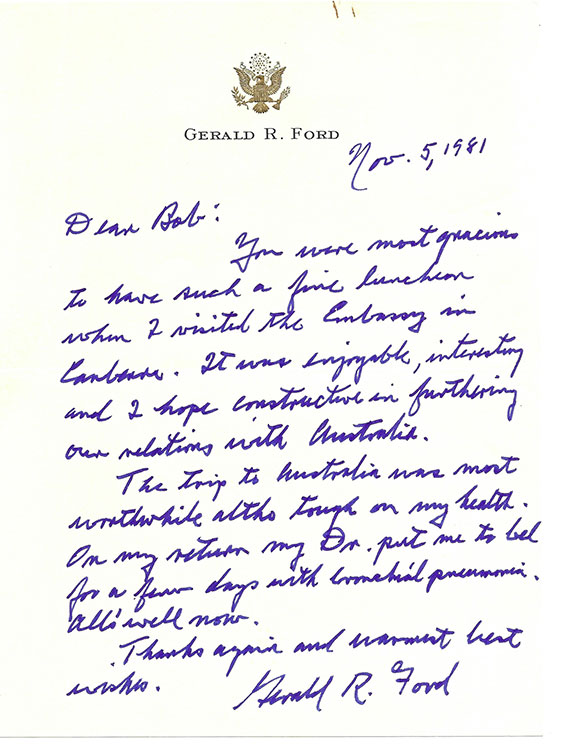 GERALD R. FORD
Nov. 5, 1981
Dear Bob:
You were most gracious
to have such a fine luncheon
when I visited the Embassy in
Canberra. It was enjoyable, interesting
and I hope constructive in furthering
our relations with Australia.
The trip to Australia was most
worthwhile altho tough on my health.
On my return my Dr. put me to bed
for a few days with bronchial pneumonia.
All's well now.
Thanks again and warmest best
wishes.
Gerald R. Ford